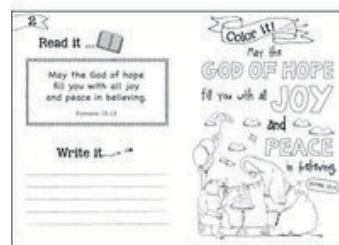 2
Read it ...
May the God of hope
fill you with all joy
and peace in believing.
Romans 15:13
Write it...
Color it!
May the
GOD OF HOPE
fill you with all JOY
and
PEACE
in believing.